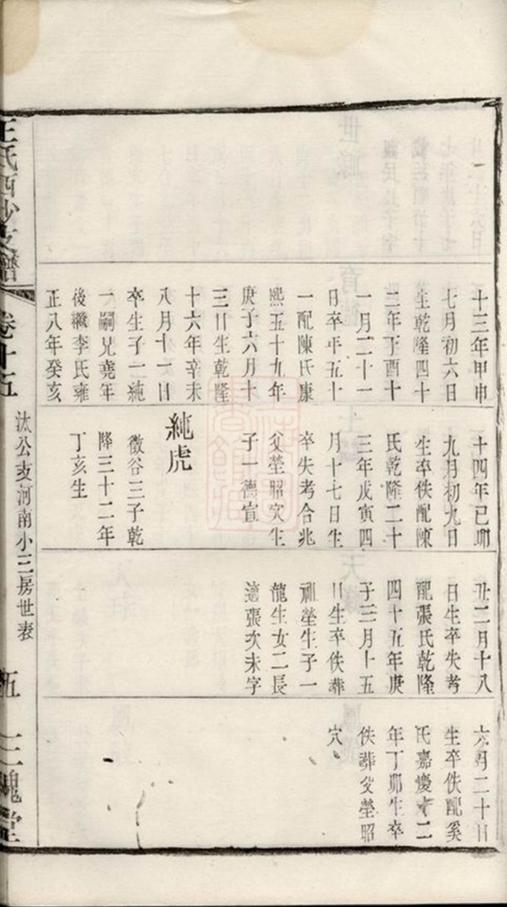 十三年甲申
七月初六日
生乾隆四十
三年丁酉十
一月二十一
日卒年五十
一配陳氏康
熙五十九年
庚子六月十
三日生乾隆
十六年辛未
八月十一日
卒生子一純
一嗣兄堯年
後繼李氏雍
正八年癸亥
十四年己卯
九月初九日
生卒佚配陳
氏乾隆二十
三年戊寅四
月十七日生
卒失考合兆
父塋昭穴生
子一德宣
純虎
徵谷三子乾
隆三十二年
丁亥生
丑二月十八
日生卒失考
配張氏乾隆
四十五年庚
子三月十五
日生卒佚葬
祖塋生子一
龍生女二長
適張次未字
六月二十日
生卒佚配奚
氏嘉慶十二
年丁卯生卒
佚葬父塋昭
穴
王氏西沙支譜
卷十五
汰公支河南小三房世表
五
三槐堂